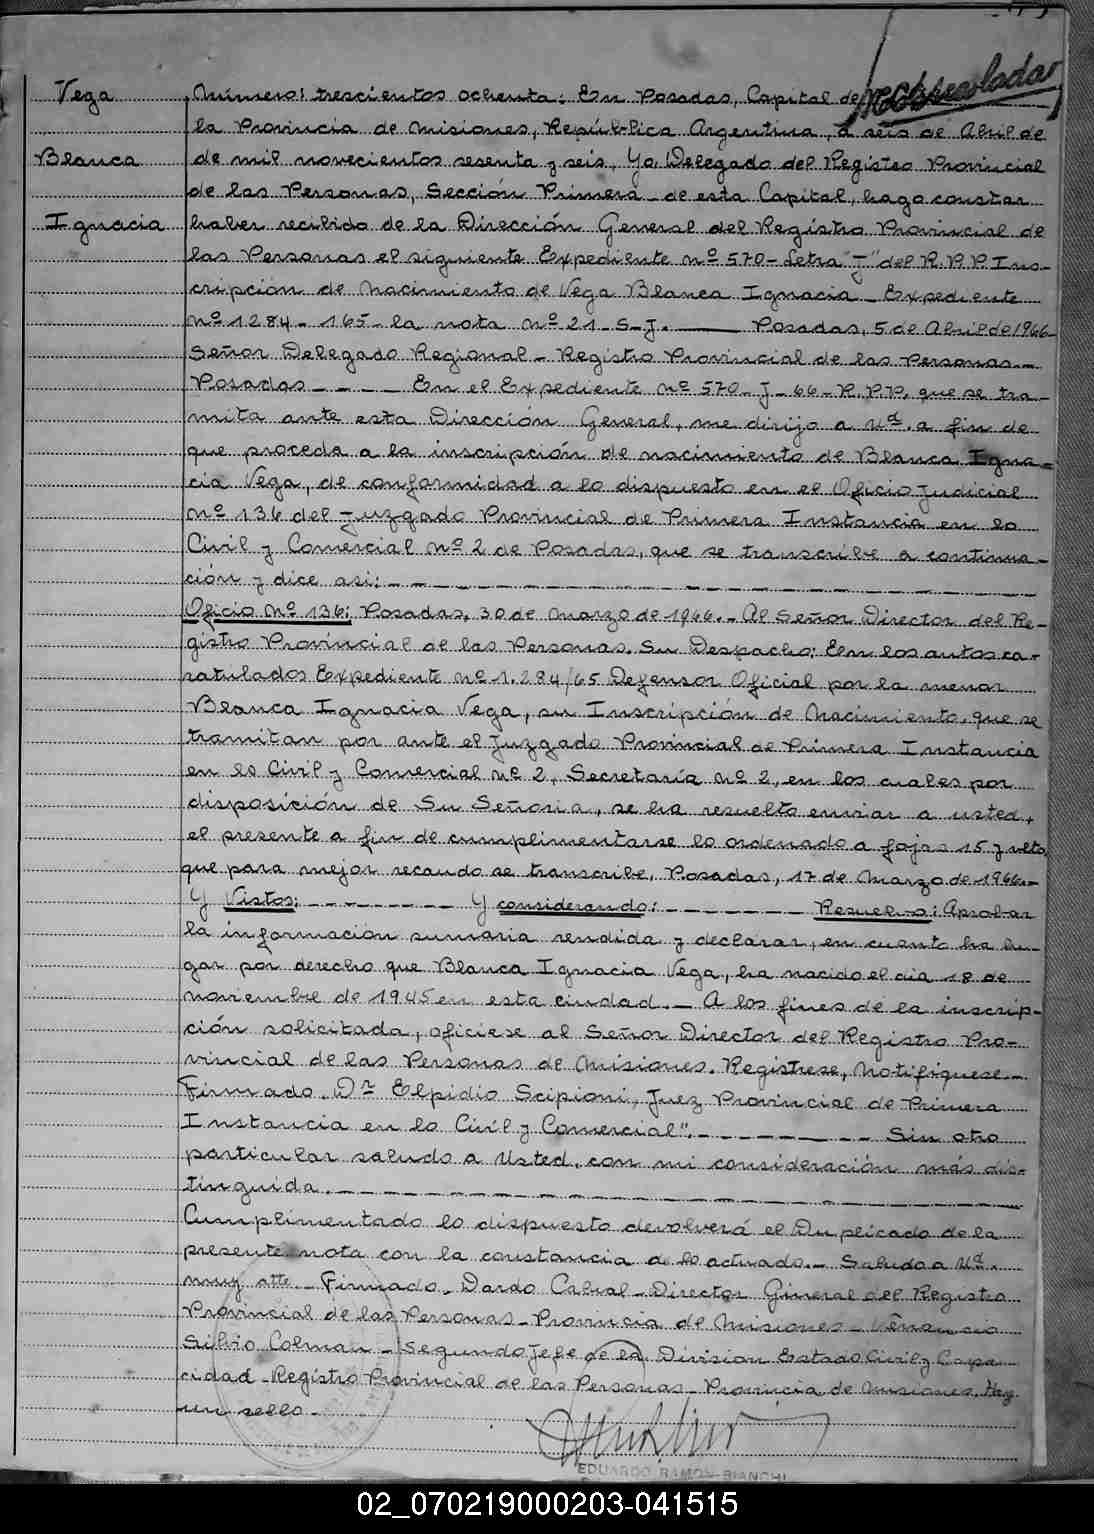 Vega
Blanca
Ignacia
Número: trescientos ochenta: En Posadas, Capital de
la Provincia de Misiones, República Argentina, a seis de Abril de
de mil novecientos sesenta y seis, Yo, Delegado del Registro Provincial
de las Personas, Sección Primera de esta Capital, hago constar
haber recibido de la Dirección General del Registro Provincial de
las Personas el siguiente Expediente nº 570- Letra "J" del R.P.P. Ins-
cripción de Nacimiento de Vega Blanca Ignacia - Expediente
Nº 1284-165- la nota nº 21-S-J. ——— Posadas, 5 de Abril de 1966
Señor Delegado Regional - Registro Provincial de las Personas.-
Posadas - - - - En el Expediente nº 570-J-66-R.P.P. que se tra-
mita ante esta Dirección General, me dirijo a Ud. a fin de
que proceda a la inscripción de nacimiento de Blanca Igna-
cia Vega, de conformidad a lo dispuesto en el Oficio Judicial
nº 136 del Juzgado Provincial de Primera Instancia en lo
Civil y Comercial nº 2 de Posadas, que se transcribe a continua-
ción y dice asi:- - - - - - - - - -
Oficio Nº 136: Posadas, 30 de Marzo de 1966.- Al Señor Director del Re-
gistro Provincial de las Personas. Su Despacho: En los autos ca-
ratulados Expediente nº 1.284/65 Defensor Oficial por la menor
Blanca Ignacia Vega, su Inscripción de Nacimiento, que se
tramitan por ante el Juzgado Provincial de Primera Instancia
en lo Civil y Comercial nº 2, Secretaría nº 2, en los cuales por
disposición de Su Señoria, se ha resuelto enviar a usted,
el presente a fin de cumplimentarse lo ordenado a fojas 15 y vlto,
que para mejor recaudo se transcribe. Posadas, 17 de Marzo de 1966.-
Y Vistos: - - - - - - Y considerando: - - - - - - Resuelvo: Aprobar
la información sumaria rendida y declarar, en cuanto ha lu-
gar por derecho que Blanca Ignacia Vega, ha nacido el dia 18 de
noviembre de 1945 en esta ciudad.- A los fines de la inscrip-
ción solicitada, oficiese al Señor Director del Registro Pro-
vincial de las Personas de Misiones. Registrese, Notifiquese.-
Firmado. Dr Elpidio Scipioni, Juez Provincial de Primera
Instancia en lo Civil y Comercial". - - - - - - - Sin otro
particular saludo a Usted, con mi consideración más dis-
tinguida. - - - - - - - - - -
Cumplimentado lo dispuesto devolverá el Duplicado de la
presente nota con la constancia de lo actuado.- Saluda a Ud.
muy atte - Firmado. Dardo Cabral - Director General del Registro
Provincial de las Personas - Provincia de Misiones - Venancio
Silvio Colman - Segundo Jefe de la Division Estado Civil y Capa-
cidad - Registro Provincial de las Personas - Provincia de Misiones. Hay
un sello.-
EDUARDO RAMON BIANCHI
02_070219000203-041515